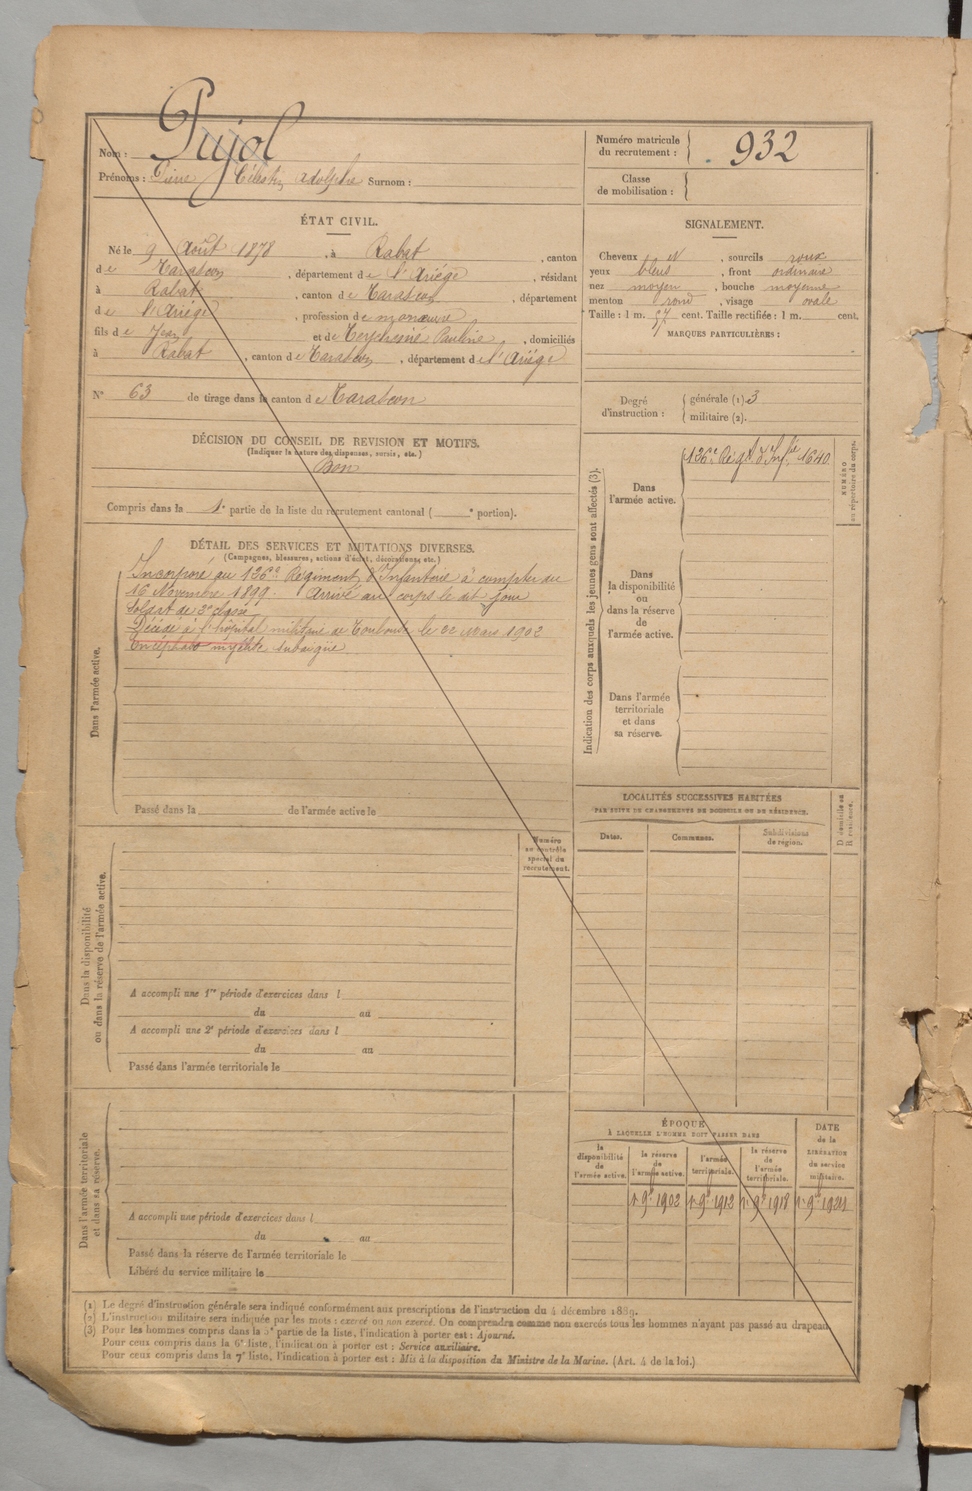 Nom : Pujol
Prénoms : Pierre Célestin Adolphe Surnom :
Numéro matricule du recrutement : 932
Classe de mobilisation :
ÉTAT CIVIL.
Né le 9 Août 1878, à Rabat, canton
de Tarascon, département de l'Ariège, résidant
à Rabat, canton de Tarascon, département
de l'Ariège, profession de manœuvre
fils de Jean et de Pauline, domiciliés
à Rabat, canton de Tarascon, département de l'Ariège
N° 63 de tirage dans le canton de Tarascon
DÉCISION DU CONSEIL DE REVISION ET MOTIFS.
(Indiquer la nature des dispenses, sursis, etc.)
Bon
Compris dans la 1e partie de la liste du recrutement cantonal ( e portion).
SIGNALEMENT.
Cheveux N, sourcils roux
yeux bleus, front ordinaire
nez moyen, bouche moyenne
menton rond, visage ovale
Taille : 1 m. 57 cent. Taille rectifiée : 1 m. cent.
MARQUES PARTICULIÈRES :
Degré d'instruction :
générale (1). 3
militaire (2).
DÉTAIL DES SERVICES ET MUTATIONS DIVERSES.
(Campagnes, blessures, actions d'éclat, décorations, etc.)
Dans l'armée active.
Incorporé au 126e Régiment d'Infanterie à compter du
16 Novembre 1899. Arrivé au corps le dit jour
Soldat de 2e classe
Décédé à l'hôpital militaire de Toulouse le 22 Mars 1902
Encéphalo myélite subaigüe
Passé dans la de l'armée active le
Indication des corps auxquels les jeunes gens sont affectés (3).
Dans l'armée active.
126e Régt d'Infie 1640
NUMÉRO au répertoire du corps.
Dans la disponibilité ou dans la réserve de l'armée active.
Dans l'armée territoriale et dans sa réserve.
LOCALITÉS SUCCESSIVES HABITÉES
PAR SUITE DE CHANGEMENTS DE DOMICILE OU DE RÉSIDENCE.
Dates.
Communes.
Subdivisions de région.
D. domicile ou R. résidence.
Dans la disponibilité ou dans la réserve de l'armée active.
Numéro au contrôle spécial du recrutement.
A accompli une 1re période d'exercices dans l
du au
A accompli une 2e période d'exercices dans l
du au
Passé dans l'armée territoriale le
Dans l'armée territoriale et dans sa réserve.
A accompli une période d'exercices dans l
du au
Passé dans la réserve de l'armée territoriale le
Libéré du service militaire le
ÉPOQUE
À LAQUELLE L'HOMME DOIT PASSER DANS
la disponibilité de l'armée active.
la réserve de l'armée active.
l'armée territoriale.
la réserve de l'armée territoriale.
DATE de la LIBÉRATION du service militaire.
1er 9bre 1902
1er 9bre 1912
1er 9bre 1918
1er 9bre 1924
(1) Le degré d'instruction générale sera indiqué conformément aux prescriptions de l'instruction du 4 décembre 1889.
(2) L'instruction militaire sera indiquée par les mots : exercé ou non exercé. On comprendra comme non exercés tous les hommes n'ayant pas passé au drapeau.
(3) Pour les hommes compris dans la 5e partie de la liste, l'indication à porter est : Ajourné.
Pour ceux compris dans la 6e liste, l'indication à porter est : Service auxiliaire.
Pour ceux compris dans la 7e liste, l'indication à porter est : Mis à la disposition du Ministre de la Marine. (Art. 4 de la loi.)